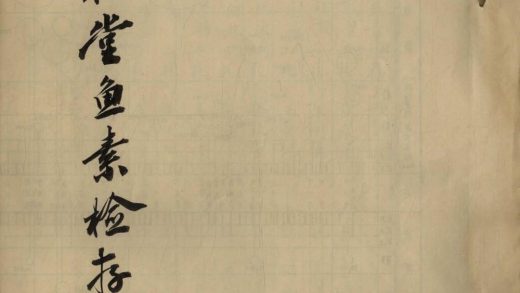 堂鱼素检存